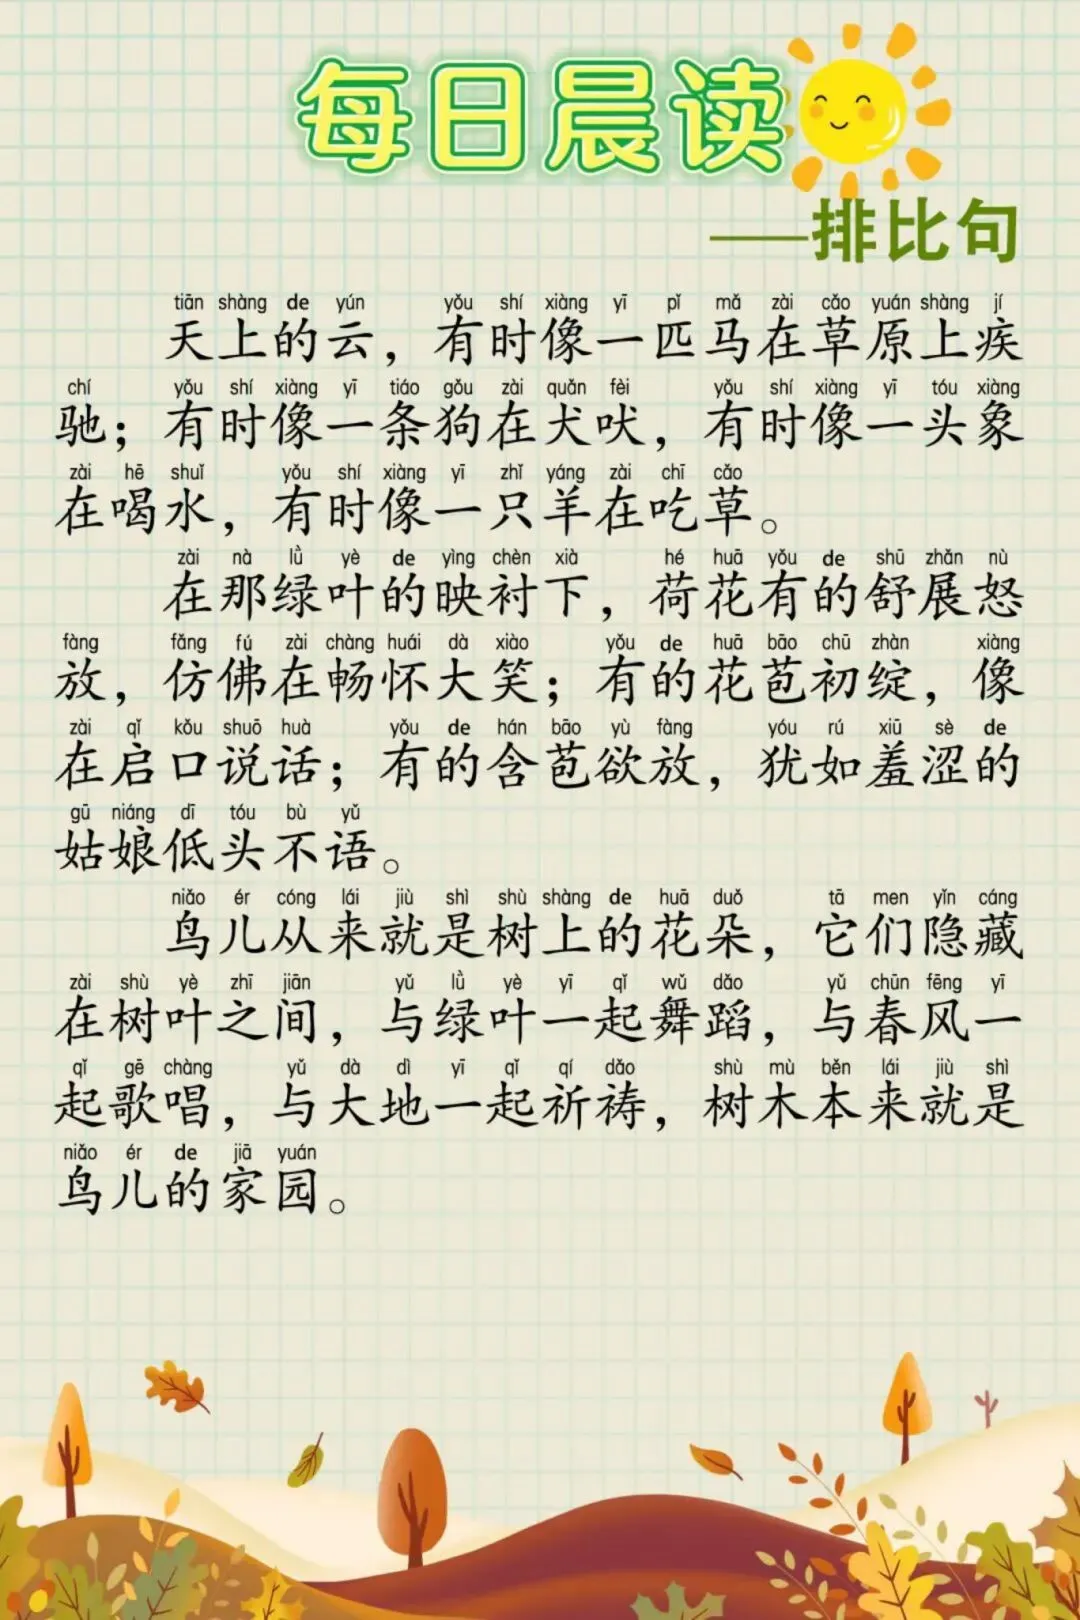 每日晨读
——排比句
tiān shàng de yún yǒu shí xiàng yī pǐ mǎ zài cǎo yuán shàng jí
天上的云，有时像一匹马在草原上疾
chí yǒu shí xiàng yī tiáo gǒu zài quǎn fèi yǒu shí xiàng yī tóu xiàng
驰；有时像一条狗在犬吠，有时像一头象
zài hē shuǐ yǒu shí xiàng yī zhǐ yáng zài chī cǎo
在喝水，有时像一只羊在吃草。
zài nà lǜ yè de yìng chèn xià hé huā yǒu de shū zhǎn nù
在那绿叶的映衬下，荷花有的舒展怒
fàng fǎng fú zài chàng huái dà xiào yǒu de huā bāo chū zhàn xiàng
放，仿佛在畅怀大笑；有的花苞初绽，像
zài qǐ kǒu shuō huà yǒu de hán bāo yù fàng yóu rú xiū sè de
在启口说话；有的含苞欲放，犹如羞涩的
gū niáng dī tóu bù yǔ
姑娘低头不语。
niǎo ér cóng lái jiù shì shù shàng de huā duǒ tā men yǐn cáng
鸟儿从来就是树上的花朵，它们隐藏
zài shù yè zhī jiān yǔ lǜ yè yī qǐ wǔ dǎo yǔ chūn fēng yī
在树叶之间，与绿叶一起舞蹈，与春风一
qǐ gē chàng yǔ dà dì yī qǐ qí dǎo shù mù běn lái jiù shì
起歌唱，与大地一起祈祷，树木本来就是
niǎo ér de jiā yuán
鸟儿的家园。